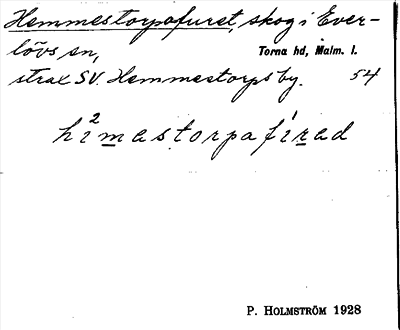 Hemmestorpafuret, skog i Ever-
lövs sn, Torna hd, Malm. l.
strax SV. Hemmestorps by. 54
hi²mastorpafírad
P. HOLMSTRÖM 1928